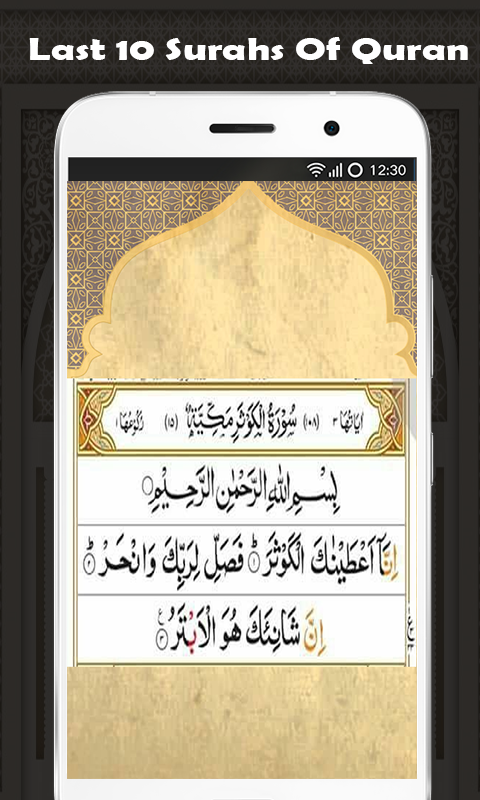 Last 10 Surahs Of Quran
12:30
اٰیَاتُهَا ۳ (۱۰۸) سُوْرَةُ الْكَوْثَرِ مَكِّيَّةٌ (۱۵) رُكُوْعُهَا ۱
بِسْمِ اللهِ الرَّحْمٰنِ الرَّحِيْمِ
اِنَّاۤ اَعْطَيْنٰكَ الْكَوْثَرَ ۱ فَصَلِّ لِرَبِّكَ وَانْحَرْ ۲
اِنَّ شَانِئَكَ هُوَ الْاَبْتَرُ ۳